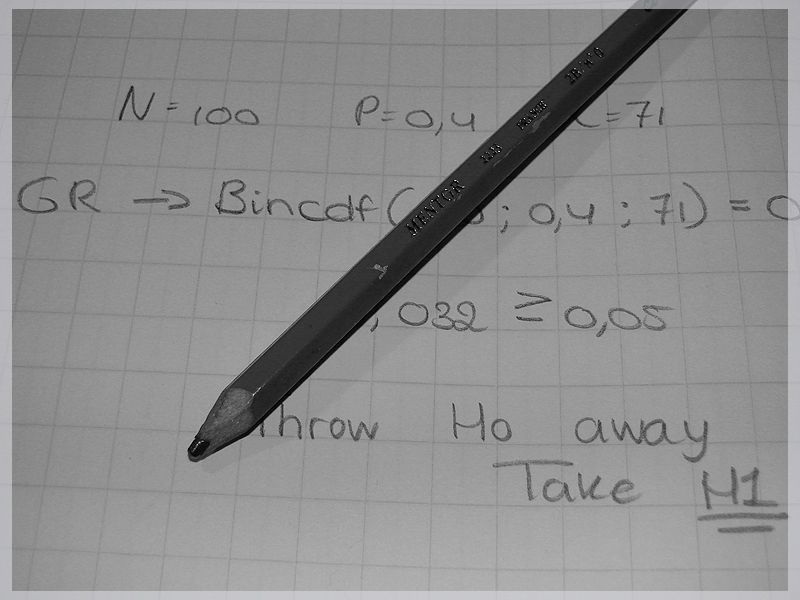 N = 100 P = 0,4 = 71
GR → Bincdf( ; 0,4 ; 71) = 0
, 032 ≥ 0,05
Throw Ho away
Take H1
MENTOR